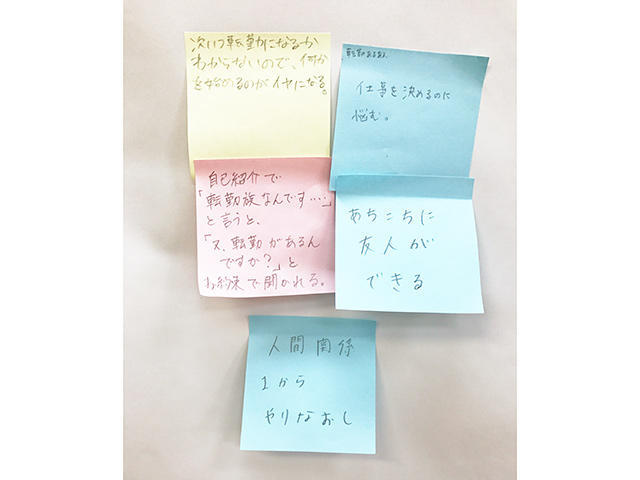 次いつ転勤になるか
わからないので、何か
を始めるのがイヤになる。
転勤あるある
仕事を決めるのに
悩む。
自己紹介で
「転勤族なんです…」
と言うと、
「又、転勤があるん
ですか?」と
お約束で聞かれる。
あちこちに
友人が
できる
人間関係
1から
やりなおし